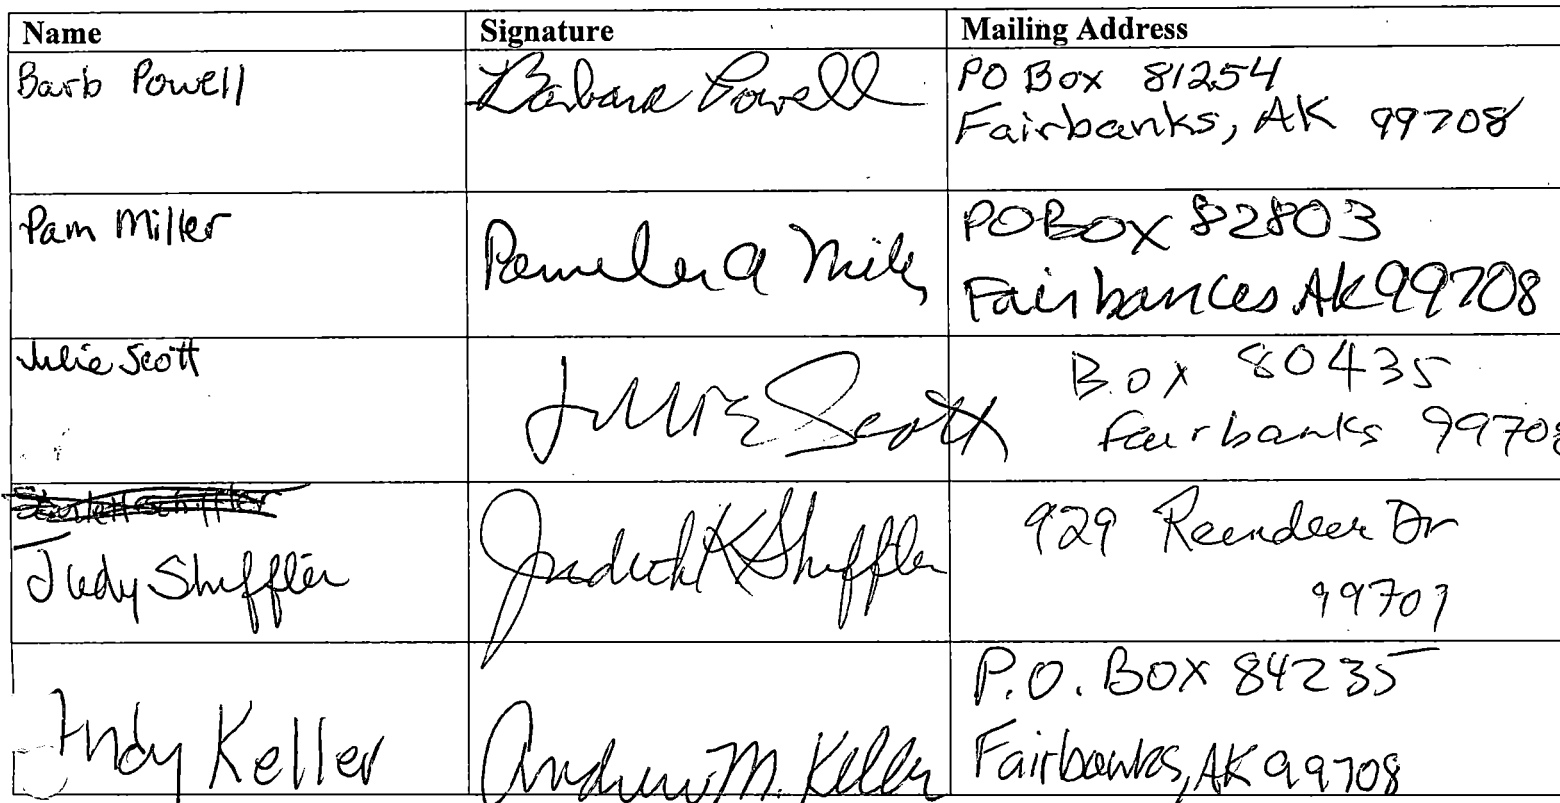 Name Signature Mailing Address
Barb Powell Barbara Powell PO Box 81254
Fairbanks, AK 99708
Pam Miller Pamela A Miller PO Box 82803
Fairbances AK 99708
Julie Scott Julie Scott Box 80435
Fairbanks 99708
Judy Shiffler Judith K Shiffler 929 Reindeer Dr
99709
Andy Keller Andrew M. Keller P.O. Box 84235
Fairbanks, AK 99708